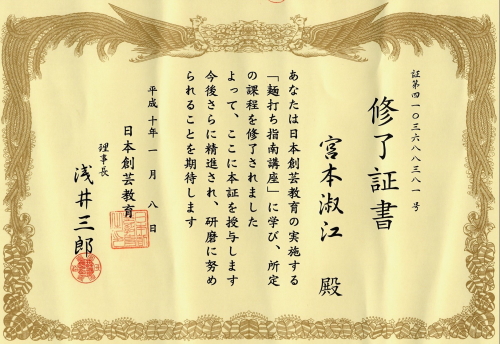 証第四一〇三六八八三八一号
修了証書
宮本淑江 殿
あなたは日本創芸教育の実施する
「麺打ち指南講座」に学び、所定
の課程を修了されました
よって、ここに本証を授与します
今後さらに精進され、研磨に努め
られることを期待します
平成十年一月八日
日本創芸教育
理事長 浅井三郎